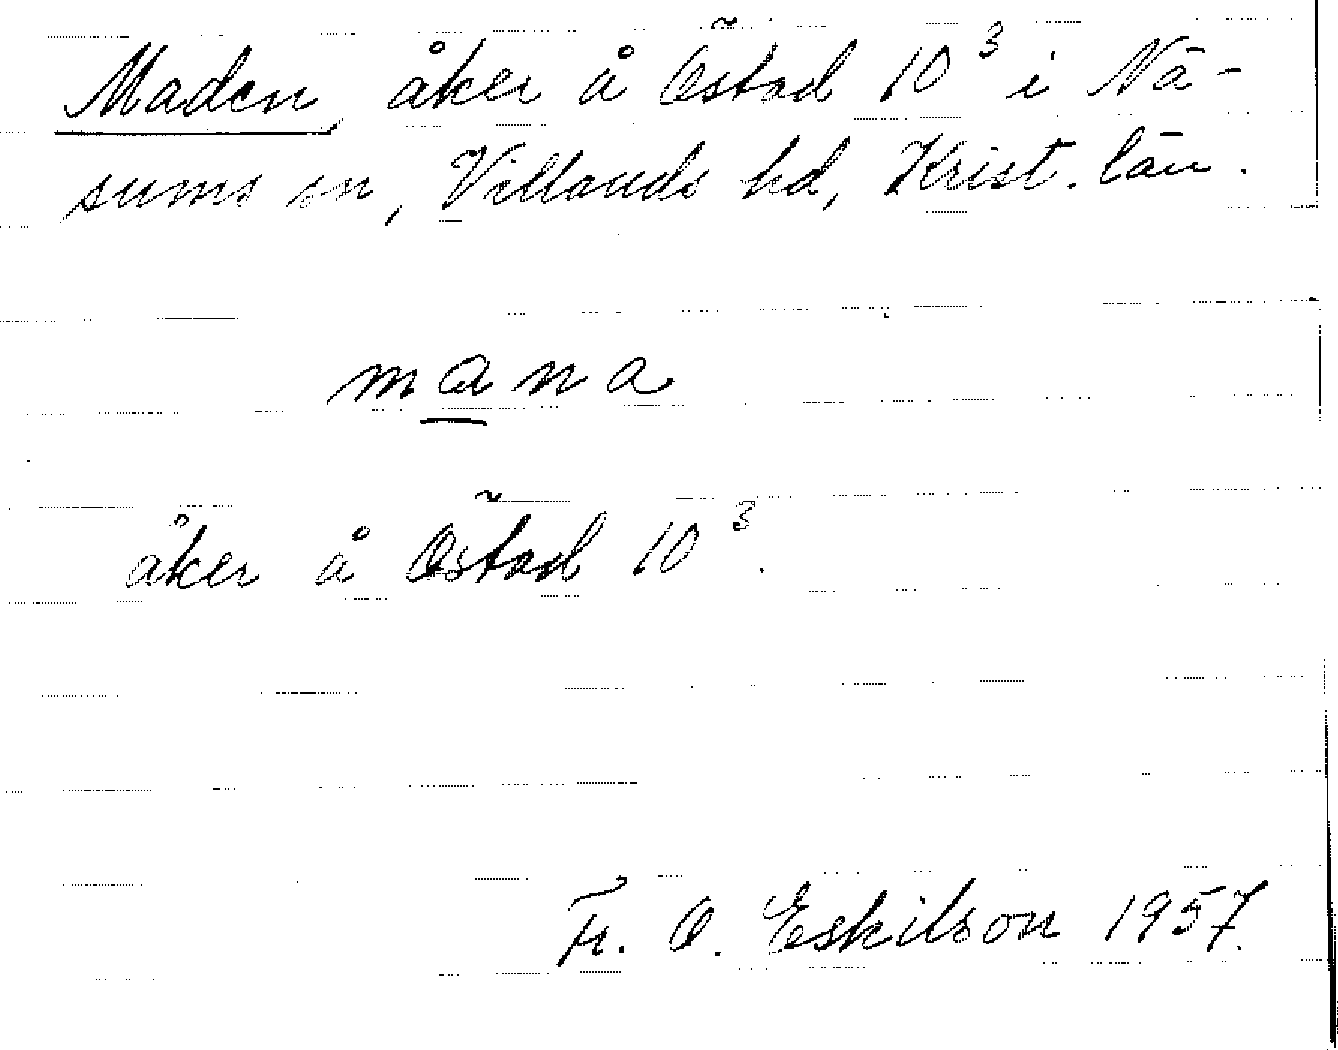 Maden, åker å Östad 10³ i Nä-
sums sn, Villands hd, Krist. län.
mana
åker å Östad 10³.
Fr. O. Eskilson 1957.